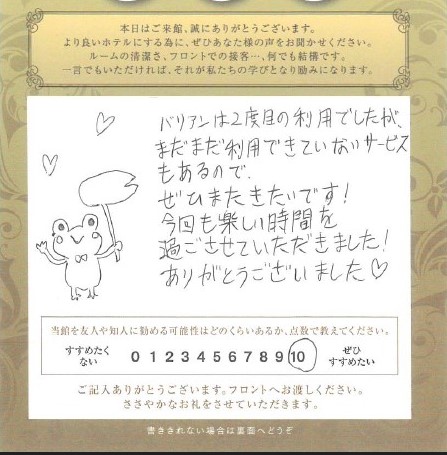 本日はご来館、誠にありがとうございます。
より良いホテルにする為に、ぜひあなた様の声をお聞かせください。
ルームの清潔さ、フロントでの接客…、何でも結構です。
一言でもいただければ、それが私たちの学びとなり励みになります。
バリアンは2度目の利用でしたが、
まだまだ利用できていないサービス
もあるので、
ぜひまたきたいです!
今回も楽しい時間を
過ごさせていただきました!
ありがとうございました♡
当館を友人や知人に勧める可能性はどのくらいあるか、点数で教えてください。
すすめたくない 0 1 2 3 4 5 6 7 8 9 10 ぜひすすめたい
ご記入ありがとうございます。フロントへお渡しください。
ささやかなお礼をさせていただきます。
書ききれない場合は裏面へどうぞ